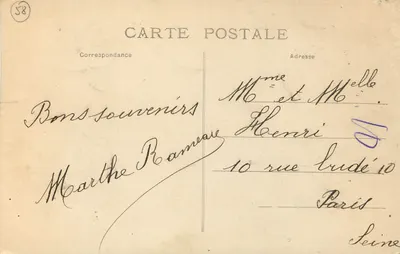 58
CARTE POSTALE
Correspondance
Adresse
Bons souvenirs
Marthe Rameau
Mme et Melle
Henri
10 rue Rudé 10
Paris
Seine